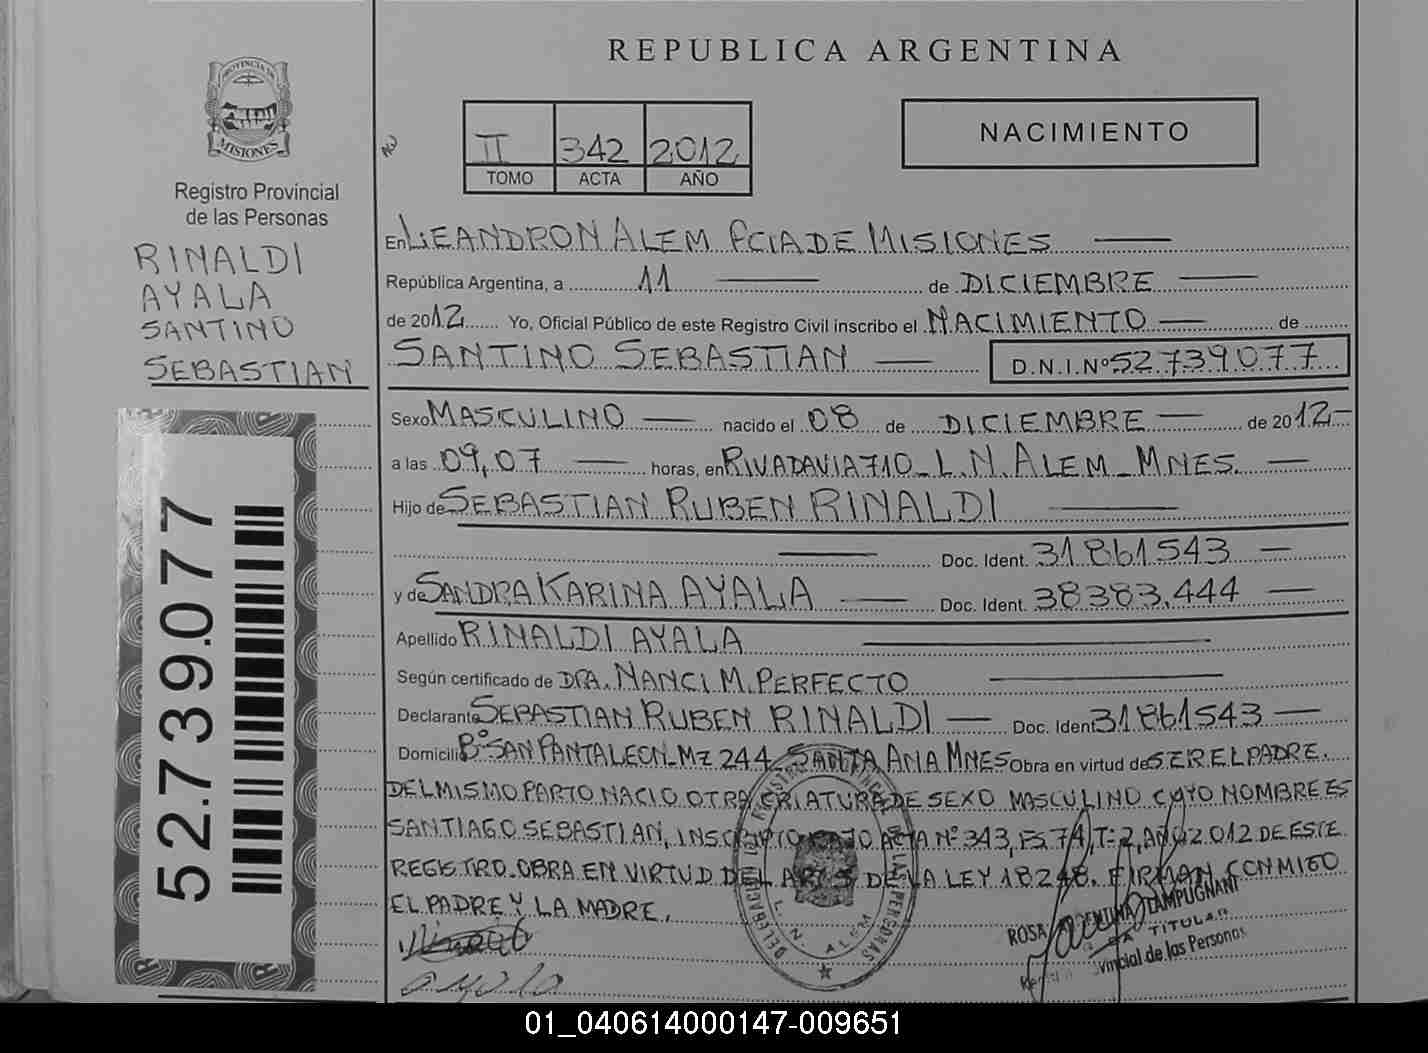 REPUBLICA ARGENTINA
NACIMIENTO
II 342 2012
TOMO ACTA AÑO
PROVINCIA DE
MISIONES
Registro Provincial
de las Personas
RINALDI
AYALA
SANTINO
SEBASTIAN
52.739.077
En LEANDRO N ALEM PCIA DE MISIONES
República Argentina, a 11 de DICIEMBRE
de 2012 Yo, Oficial Público de este Registro Civil inscribo el NACIMIENTO de
SANTINO SEBASTIAN D.N.I.Nº 52.739.077
Sexo MASCULINO nacido el 08 de DICIEMBRE de 2012
a las 09,07 horas, en RIVADAVIA 710_L.N.ALEM_MNES.
Hijo de SEBASTIAN RUBEN RINALDI
Doc. Ident. 31.861.543
y de SANDRA KARINA AYALA Doc. Ident. 38383.444
Apellido RINALDI AYALA
Según certificado de DRA. NANCI M. PERFECTO
Declarante SEBASTIAN RUBEN RINALDI Doc. Ident 31861543
Domicilio Bº SAN PANTALEON_MZ 244_SANTA ANA MNES Obra en virtud de SER EL PADRE.
DEL MISMO PARTO NACIO OTRA CRIATURA DE SEXO MASCULINO CUYO NOMBRE ES
SANTIAGO SEBASTIAN, INSCRIPTO BAJO ACTA Nº 343, FS 74, T=2, AÑO 2.012 DE ESTE
REGISTRO. OBRA EN VIRTUD DEL ART 5 DE LA LEY 18248. FIRMAN CONMIGO
EL PADRE Y LA MADRE.
L. N. ALEM
ROSA ARGENTINA LAMPUGNANI
TITULAR
Provincial de las Personas
01_040614000147-009651